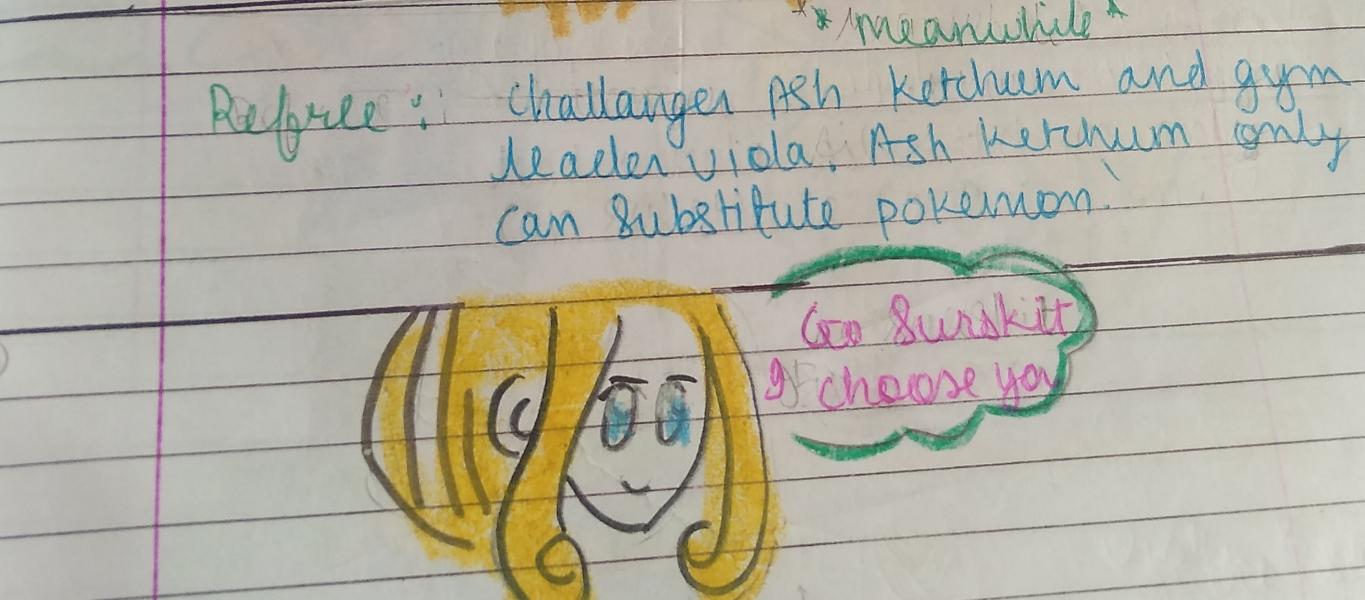 *meanwhile*
Refree: Challanger Ash Ketchum and gym
leader viola. Ash Ketchum only
can Substitute pokemon.
Go Surskit
I choose you